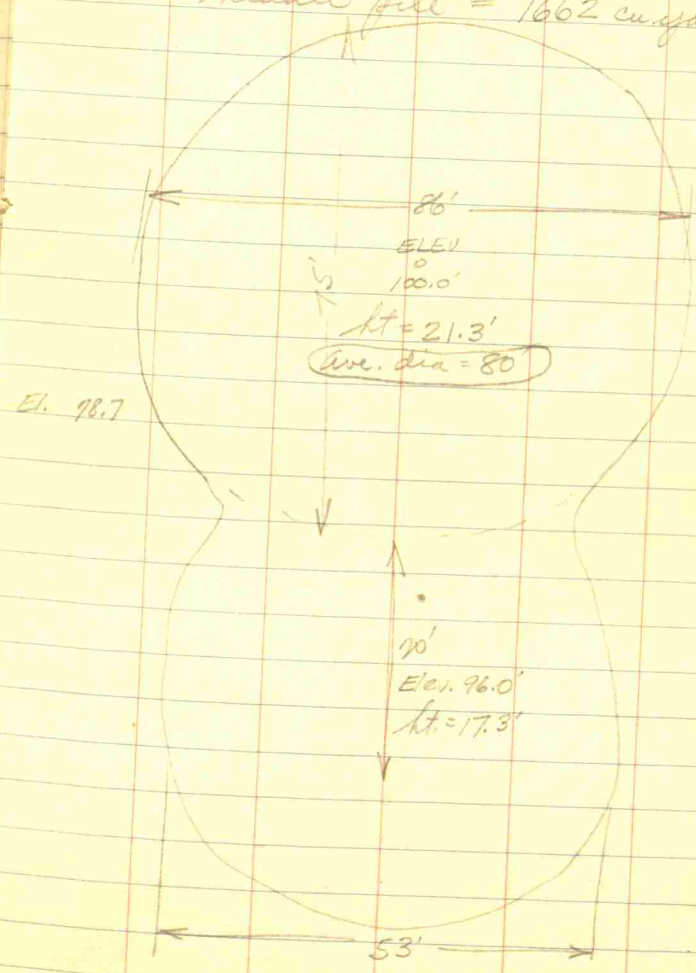 pile = 1662 cu yd
86'
ELEV
100.0'
75'
ht = 21.3'
ave. dia = 80'
El. 78.7
70'
Elev. 96.0'
ht. = 17.3'
53'